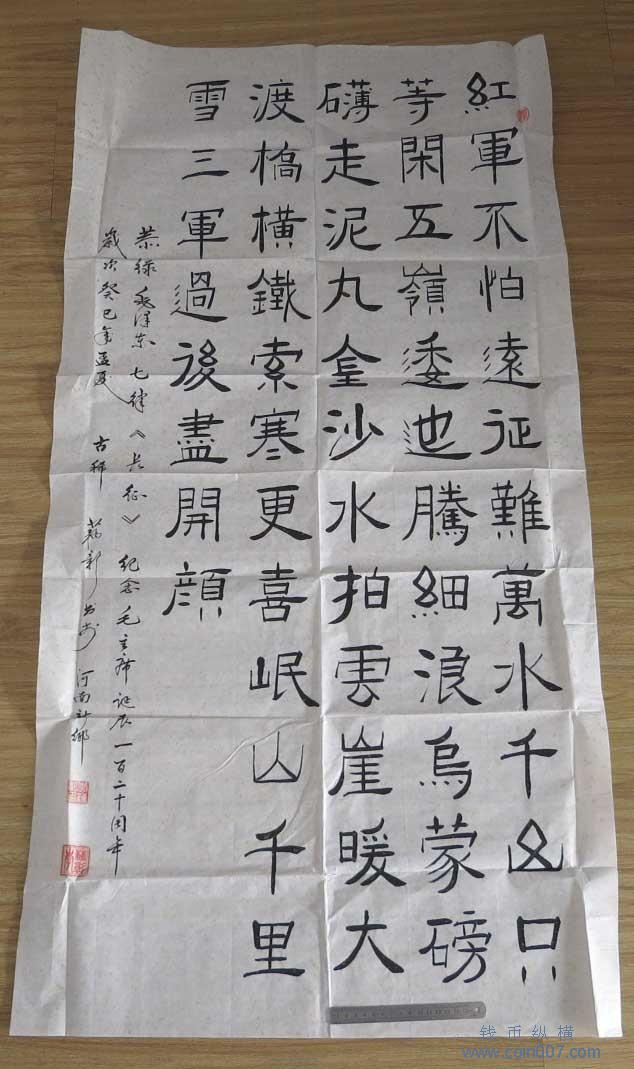 紅軍不怕遠征難萬水千山只
等閑五嶺逶迆騰細浪烏蒙磅
礴走泥丸金沙水拍雲崖暖大
渡橋橫鐵索寒更喜岷山千里
雪三軍過後盡開顔
恭録毛泽东七律《长征》纪念毛主席诞辰一百二十周年
歲次癸巳年孟夏 古稀 書於 河南新鄉
钱币纵横
www.coin007.com